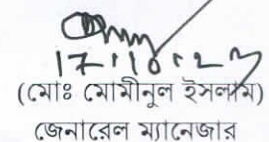 17.10.23
(মোঃ মোমীনুল ইসলাম)
জেনারেল ম্যানেজার